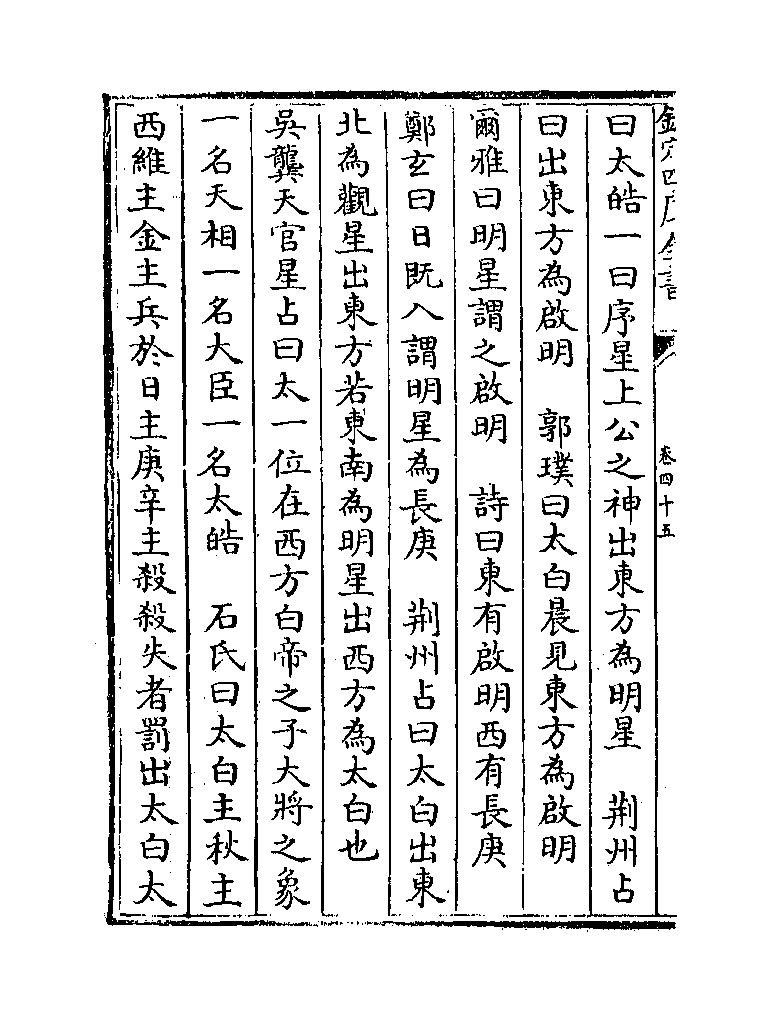 欽定四庫全書
卷四十五
曰太皓一曰序星上公之神出東方為明星　荆州占
曰出東方為啟明　郭璞曰太白晨見東方為啟明
爾雅曰明星謂之啟明　詩曰東有啟明西有長庚
鄭玄曰日既入謂明星為長庚　荆州占曰太白出東
北為觀星出東方若東南為明星出西方為太白也
吳龔天官星占曰太一位在西方白帝之子大將之象
一名天相一名大臣一名太皓　石氏曰太白主秋主
西維主金主兵於日主庚辛主殺殺失者罰出太白太